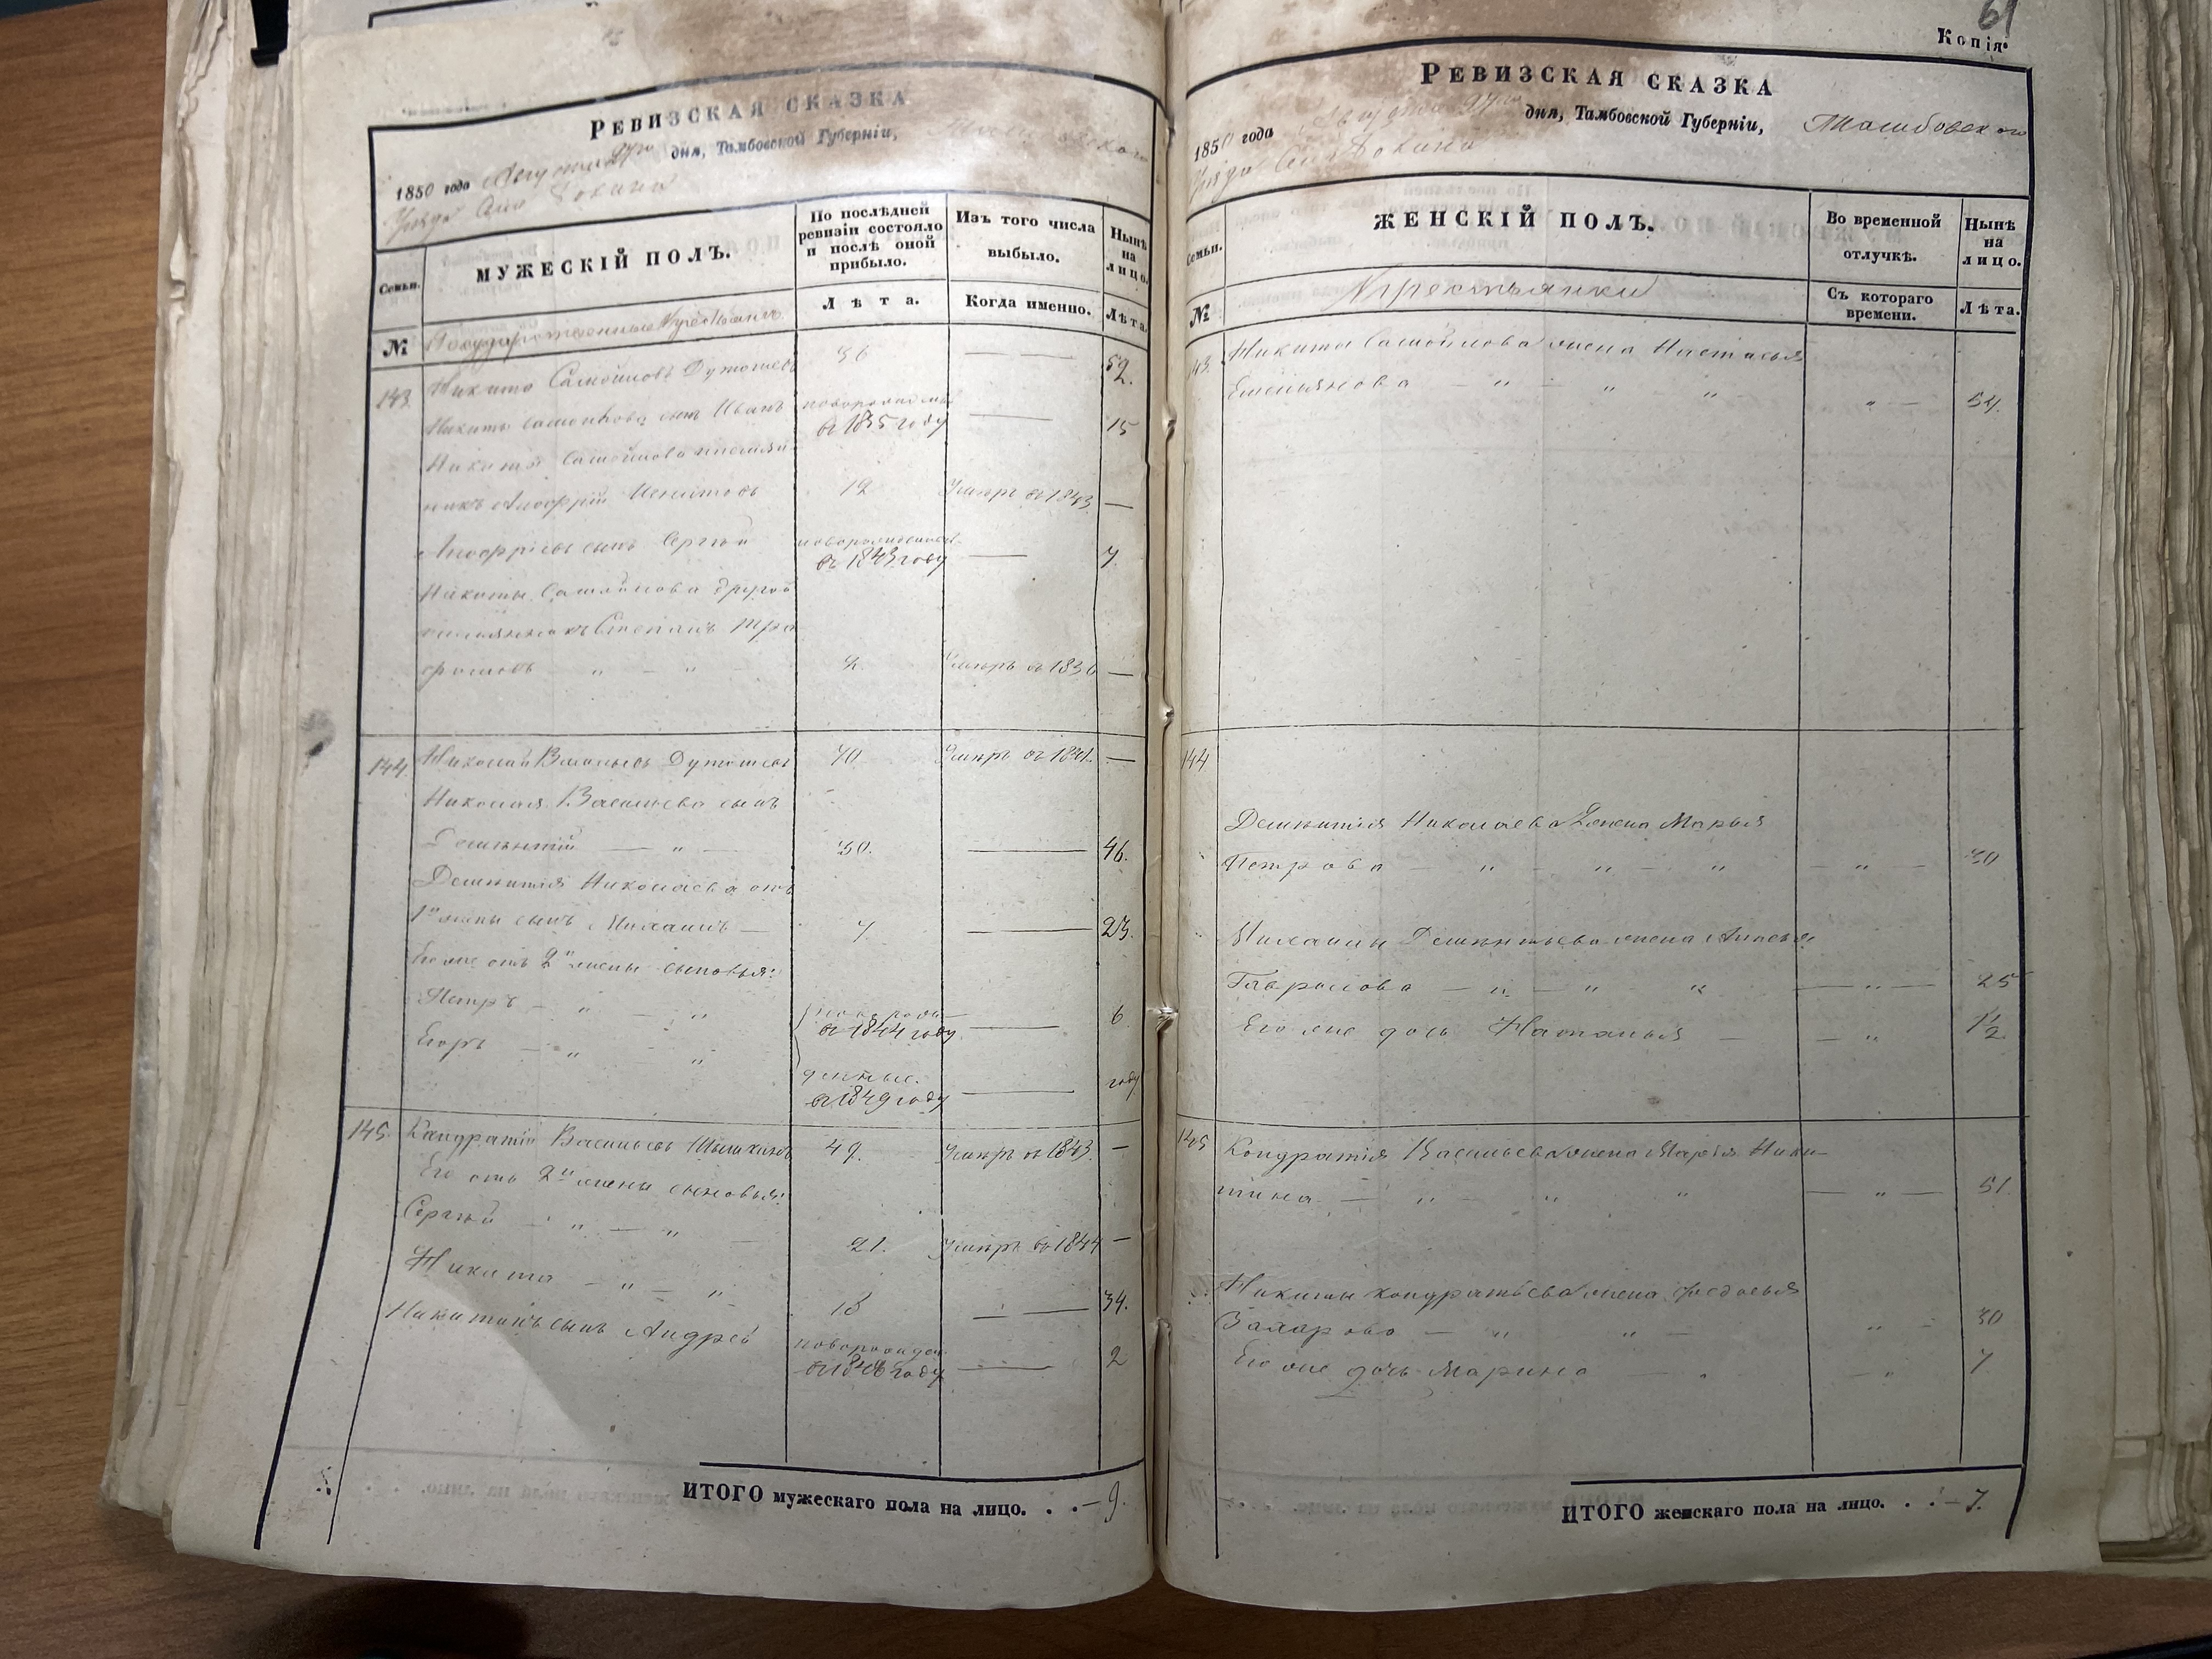 61
Копія.
РЕВИЗСКАЯ СКАЗКА
1850 года Августа 27го дня, Тамбовской Губерніи,
Уѣзда Села
Семьи.
МУЖЕСКІЙ ПОЛЪ.
По послѣдней ревизіи состояло и послѣ оной прибыло.
Изъ того числа выбыло.
Нынѣ на лицо.
№
Лѣта.
Когда именно.
Лѣта.
Государственные Крестьяне
143. Никита Самойловъ 36 — 52.
Никиты Самойлова сынъ Иванъ новорожденный в 1835 году — 15
Никиты Самойлова племян-
никъ 12 Умеръ въ 1843. —
сынъ Сергѣй новорожденный въ 1843 году — 7.
Никиты Самойлова другой
племянникъ Степанъ Тро
фимовъ — „ — „ Умеръ въ 1836 —
144 Николай Васильевъ 70 Умеръ въ 1841. —
Николая Васильева сынъ
Дементій — „ — 30. — 46.
Дементія Николаева отъ
1й жены сынъ Михаилъ — 7 — 23.
Его же отъ 2й жены сыновья:
Петръ — „ — „ новорож- в 1844 году — 6
Егоръ — „ — „
денные. в 1849 году — году
145. Кондратій Васильевъ 49. Умеръ въ 1843. —
Его отъ 2й жены сыновья:
Сергѣй — „ — „ — 21. Умеръ въ 1844 —
Никита — „ — „ 18 — 34.
Никитинъ сынъ Андрей новорожден. в 1848 году — 2
ИТОГО мужескаго пола на лицо. . . — 9.
РЕВИЗСКАЯ СКАЗКА
1850 года Августа 27го дня, Тамбовской Губерніи, Тамбовскаго
Уѣзда Села
Семьи.
ЖЕНСКІЙ ПОЛЪ.
Во временной отлучкѣ.
Нынѣ на лицо.
№
Крестьянки
Съ котораго времени.
Лѣта.
143. Никиты Самойлова жена Настасья
Емельянова — „ — „ „ „ — 54.
144
Дементія Николаева жена Марья
Петрова — „ — „ — „ — „ — 30
Михаилы Дементьева жена
Гаврилова — „ — „ „ — „ — 25
Его же дочь Наталья — — „ 1½
145 Кондратія Васильева жена Марья Ники-
тина — „ — „ „ — „ — 51.
Никиты Кондратьева жена Федосья
Захарова — „ „ — „ — 30
Его же дочь Марина — „ 7
ИТОГО женскаго пола на лицо. . . — 7.